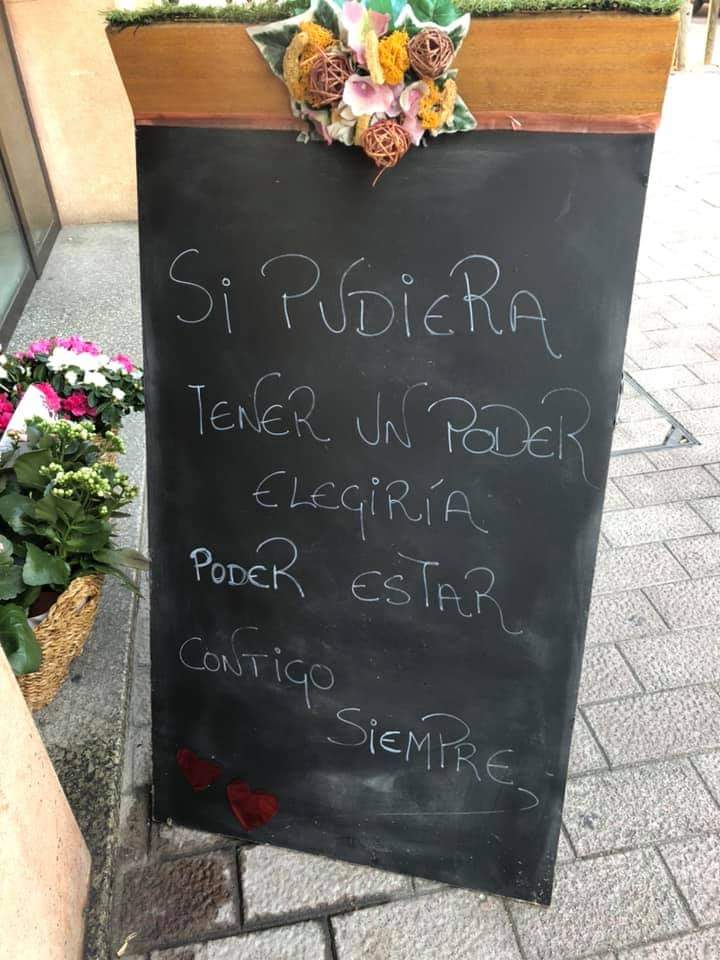 Si PUDiERA
TENER UN PODER
ELEGIRÍA
PODER ESTAR
CONTIGO
SiEMPRE